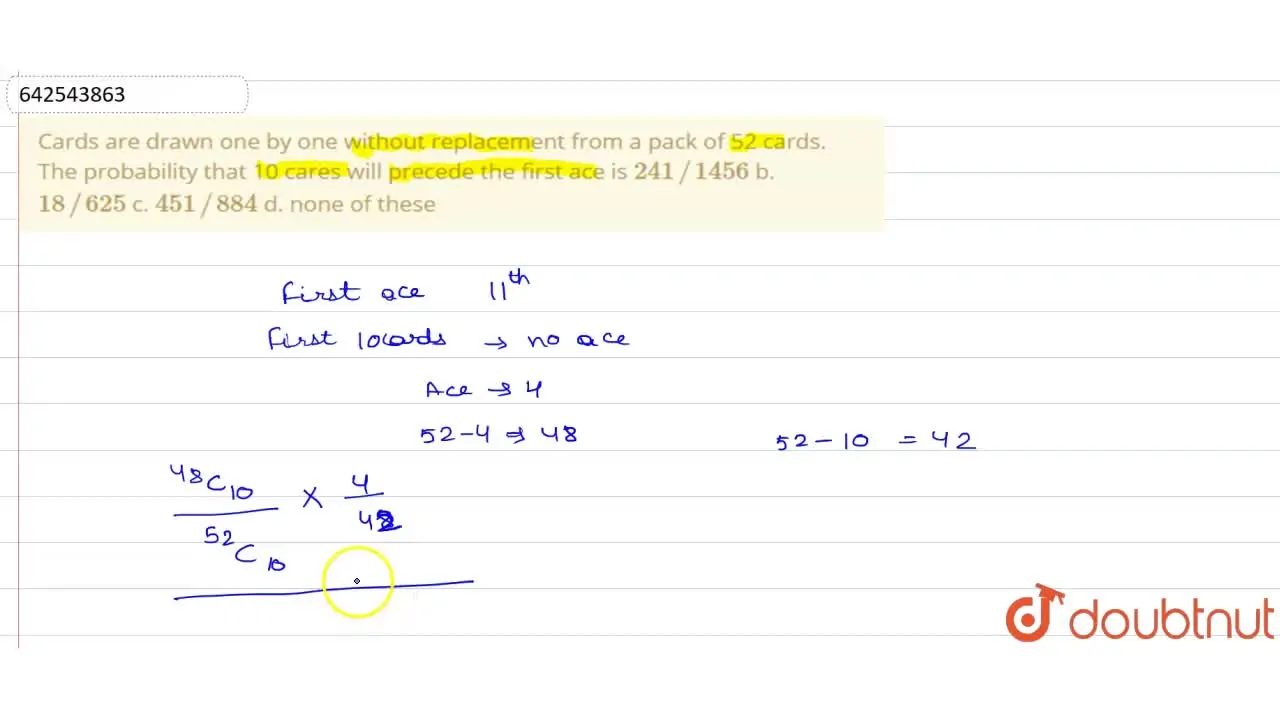 642543863
Cards are drawn one by one without replacement from a pack of 52 cards.
The probability that 10 cares will precede the first ace is 241/1456 b.
18/625 c. 451/884 d. none of these
First ace 11th
First 10cards → no ace
Ace → 4
52-4 ⇒ 48
52-10 = 42
48C10
52C10
X
4
42
doubtnut